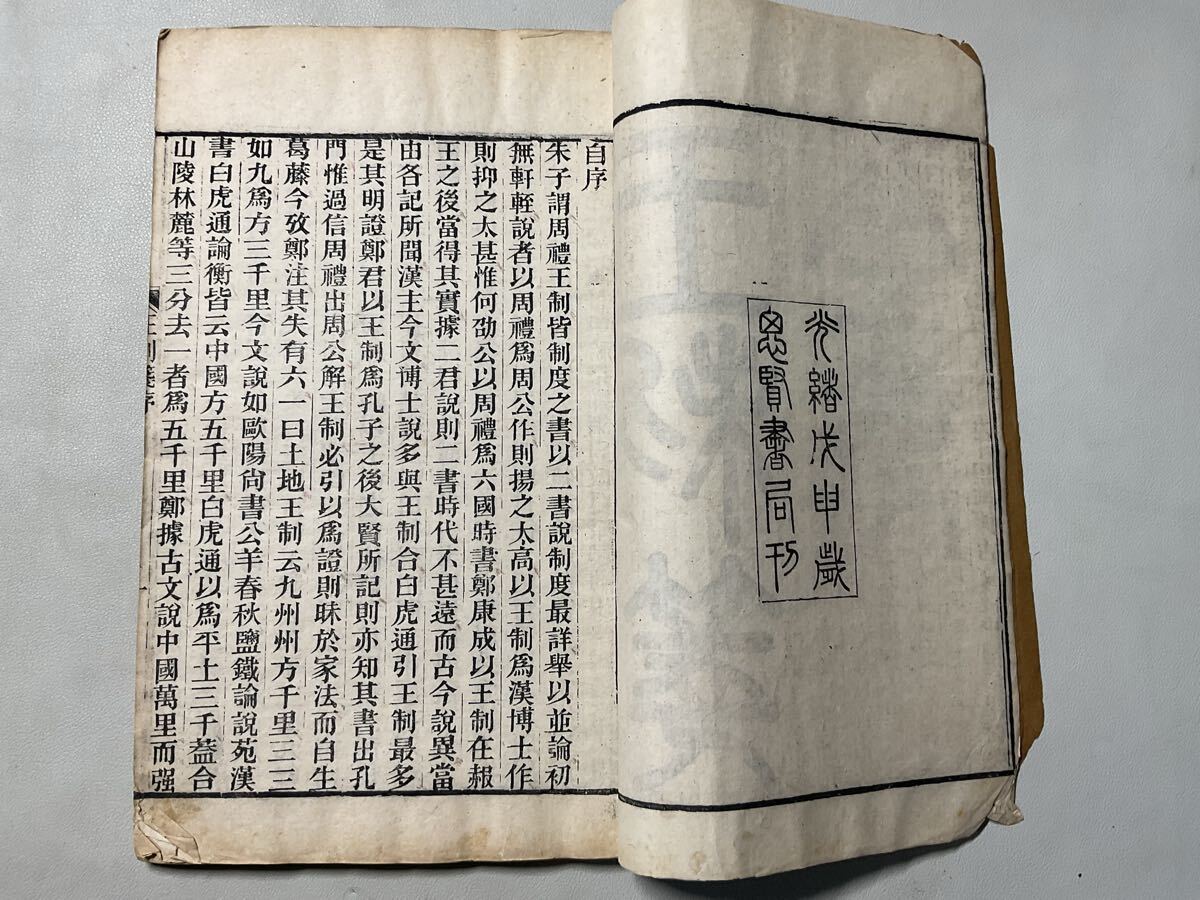 光緒戊申歲
思賢書局刊
自序
朱子謂周禮王制皆制度之書以二書說制度最詳舉以並論初
無軒輊說者以周禮爲周公作則揚之太高以王制爲漢博士作
則抑之太甚惟何劭公以周禮爲六國時書鄭康成以王制在赧
王之後當得其實據二君說則二書時代不甚遠而古今說異當
由各記所聞漢主今文博士說多與王制合白虎通引王制最多
是其明證鄭君以王制爲孔子之後大賢所記則亦知其書出孔
門惟過信周禮出周公解王制必引以爲證則昧於家法而自生
葛藤今攷鄭注其失有六一曰土地王制云九州州方千里三三
如九爲方三千里今文說如歐陽尙書公羊春秋鹽鐵論說苑漢
書白虎通論衡皆云中國方五千里白虎通以爲平土三千葢合
山陵林麓等三分去一者爲五千里鄭據古文說中國萬里而强
王制箋序